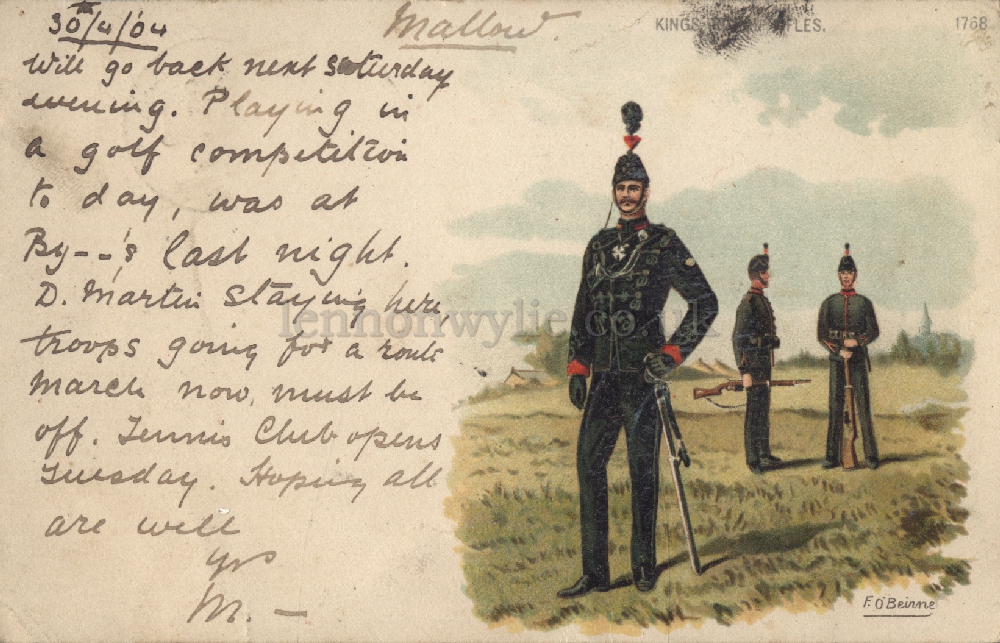 30th/4/'04
Mallow.
KINGS ROYAL RIFLES.
1768
Will go back next saturday
evening. Playing in
a golf competition
to day, was at
By--'s last night.
D. Martin staying here,
troops going for a route
march now, must be
off. Tennis Club opens
Tuesday. Hoping all
are well
yrs
M. -
lennonwylie.co.uk
F. O'Beirne